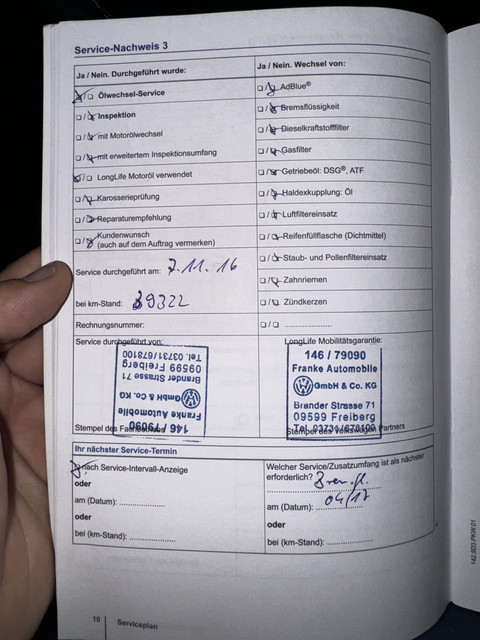 Service-Nachweis 3
Ja / Nein. Durchgeführt wurde:
Ölwechsel-Service
Inspektion
mit Motorölwechsel
mit erweitertem Inspektionsumfang
LongLife Motoröl verwendet
Karosserieprüfung
Reparaturempfehlung
Kundenwunsch
(auch auf dem Auftrag vermerken)
Service durchgeführt am: 7.11.16
bei km-Stand: 39322
Rechnungsnummer:
Service durchgeführt von:
146 / 79090
Franke Automobile
GmbH & Co. KG
Brander Strasse 71
09599 Freiberg
Tel. 03731/678100
Stempel des
Ja / Nein. Wechsel von:
AdBlue®
Bremsflüssigkeit
Dieselkraftstofffilter
Gasfilter
Getriebeöl: DSG®, ATF
Haldexkupplung: Öl
Luftfiltereinsatz
Reifenfüllflasche (Dichtmittel)
Staub- und Pollenfiltereinsatz
Zahnriemen
Zündkerzen
LongLife Mobilitätsgarantie:
146 / 79090
Franke Automobile
GmbH & Co. KG
Brander Strasse 71
09599 Freiberg
Tel. 03731/678100
Stempel des Volkswagen Partners
Ihr nächster Service-Termin
nach Service-Intervall-Anzeige
oder
am (Datum):
oder
bei (km-Stand):
Welcher Service/Zusatzumfang ist als nächster
erforderlich? Brem.fl.
am (Datum): 04/17
oder
bei (km-Stand):
10 Serviceplan